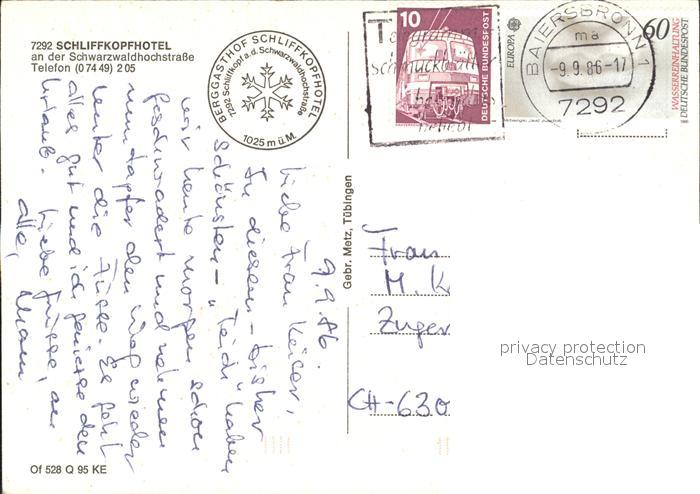 7292 SCHLIFFKOPFHOTEL
an der Schwarzwaldhochstraße
Telefon (0 74 49) 2 05
BERGGASTHOF SCHLIFFKOPFHOTEL
7292 Schliffkopf a.d. Schwarzwaldhochstraße
1025 m ü.M.
10
DEUTSCHE BUNDESPOST
EUROPA
60
WASSERREINHALTUNG
DEUTSCHE BUNDESPOST
BAIERSBRONN 1
ma
-9.9.86-17
7292
schmuckvoller
beliebt
9.9.86.
Liebe Frau Keiser,
In diesem – bisher
schönsten – "Teich" haben
wir heute morgen schon
gebadet und nehmen
nun tapfer den Weg wieder
unter die Füsse. Es geht
alles gut und ich geniesse den
Urlaub. Liebe Grüsse, an
alle,
Gebr. Metz, Tübingen
Frau
M. K
Zuger
CH-630
privacy protection
Datenschutz
Of 528 Q 95 KE